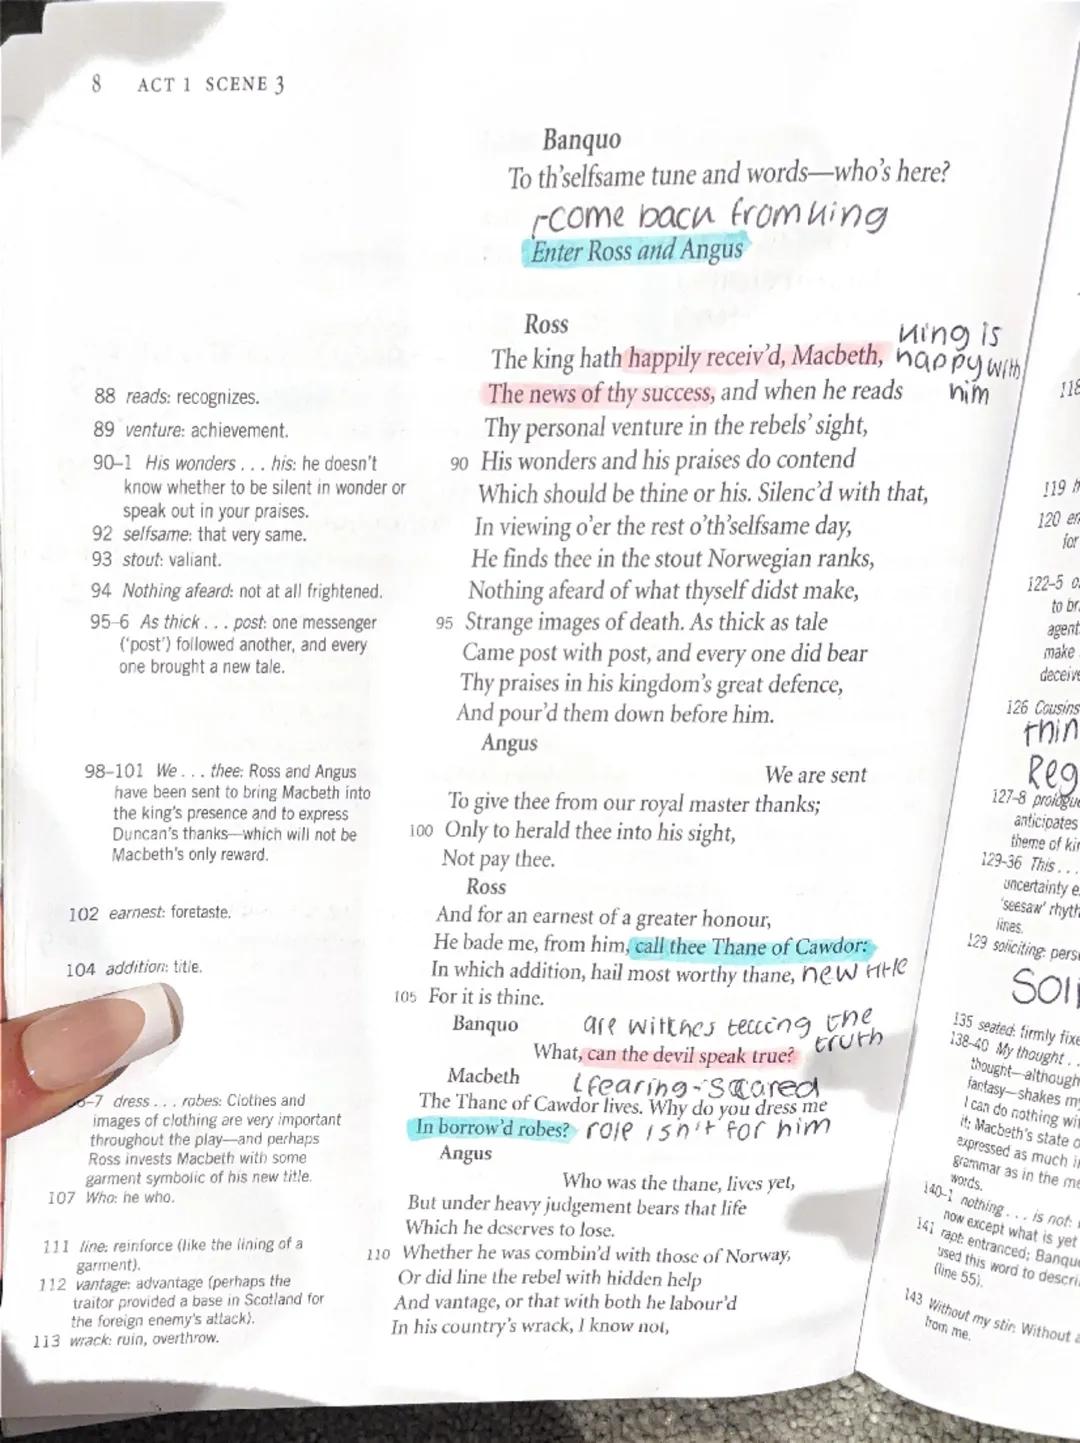 8 ACT 1 SCENE 3
Banquo
To th'selfsame tune and words—who's here?
come back from king
Enter Ross and Angus
Ross
The king hath happily receiv'd, Macbeth,
The news of thy success, and when he reads
king is
happy with
him
Thy personal venture in the rebels' sight,
90 His wonders and his praises do contend
Which should be thine or his. Silenc'd with that,
In viewing o'er the rest o'th'selfsame day,
He finds thee in the stout Norwegian ranks,
Nothing afeard of what thyself didst make,
95 Strange images of death. As thick as tale
Came post with post, and every one did bear
Thy praises in his kingdom's great defence,
And pour'd them down before him.
Angus
We are sent
To give thee from our royal master thanks;
100 Only to herald thee into his sight,
Not pay thee.
Ross
And for an earnest of a greater honour,
He bade me, from him, call thee Thane of Cawdor:
In which addition, hail most worthy thane, new title
105 For it is thine.
Banquo
are witches telling the
truth
What, can the devil speak true?
Macbeth
fearing - scared
The Thane of Cawdor lives. Why do you dress me
In borrow'd robes? role isn't for him
Angus
Who was the thane, lives yet,
But under heavy judgement bears that life
Which he deserves to lose.
110 Whether he was combin'd with those of Norway,
Or did line the rebel with hidden help
And vantage, or that with both he labour'd
In his country's wrack, I know not,
88 reads: recognizes.
89 venture: achievement.
90–1 His wonders . . . his: he doesn't
know whether to be silent in wonder or
speak out in your praises.
92 selfsame: that very same.
93 stout: valiant.
94 Nothing afeard: not at all frightened.
95–6 As thick . . . post: one messenger
('post') followed another, and every
one brought a new tale.
98–101 We . . . thee: Ross and Angus
have been sent to bring Macbeth into
the king's presence and to express
Duncan's thanks—which will not be
Macbeth's only reward.
102 earnest: foretaste.
104 addition: title.
–7 dress . . . robes: Clothes and
images of clothing are very important
throughout the play—and perhaps
Ross invests Macbeth with some
garment symbolic of his new title.
107 Who: he who.
111 line: reinforce (like the lining of a
garment).
112 vantage: advantage (perhaps the
traitor provided a base in Scotland for
the foreign enemy's attack).
113 wrack: ruin, overthrow.
118
119
120
for
122–5
to
agent
make
126 Cousins
127–8 prologue
anticipates
theme of
129–36 This . . .
uncertainty
'seesaw'
lines.
129 soliciting:
135 seated: firmly
138–40 My thought . .
thought—although
fantasy—shakes
I can do nothing
it; Macbeth's state
expressed as much
grammar as in the
words.
140–1 nothing . . . is not:
now except what is yet
141 rapt: entranced;
used this word to
(line 55).
143 Without my stir: Without
from me.